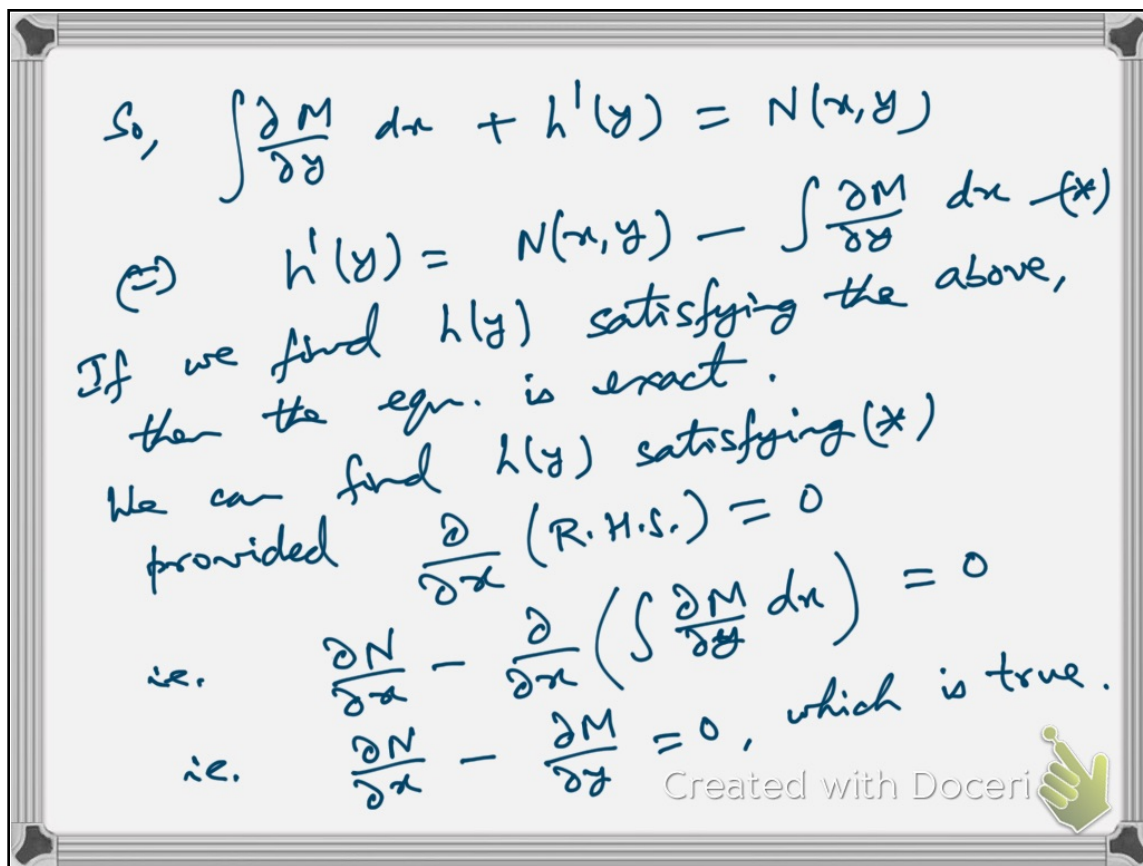 So, ∫ ∂M/∂y dx + h'(y) = N(x,y)
(=) h'(y) = N(x,y) — ∫ ∂M/∂y dx —(*)
If we find h(y) satisfying the above,
then the eqn. is exact.
We can find h(y) satisfying (*)
provided ∂/∂x (R.H.S.) = 0
i.e. ∂N/∂x — ∂/∂x (∫ ∂M/∂y dx) = 0
ie. ∂N/∂x — ∂M/∂y = 0, which is true.
Created with Doceri